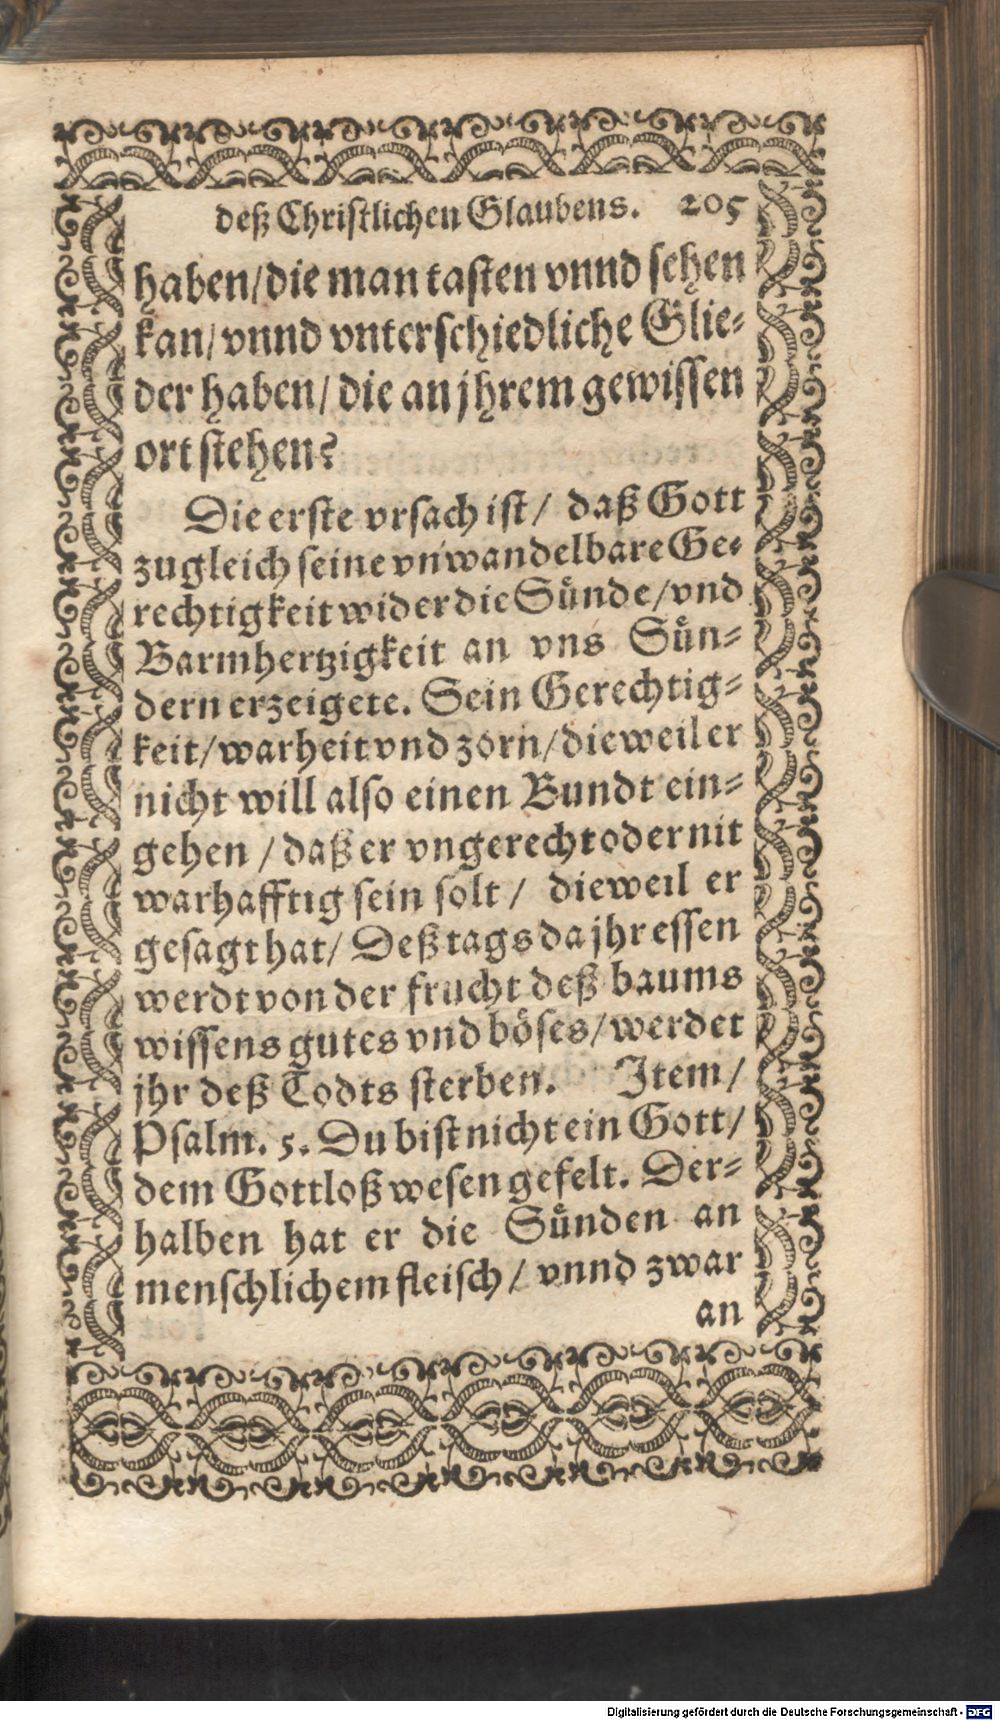 deß Christlichen Glaubens. 205
haben/die man tasten vnnd sehen
kan/ vnnd vnterschiedliche Glie-
der haben/ die an jhrem gewissen
ort stehen?
Die erste vrsach ist/ daß Gott
zugleich seine vnwandelbare Ge-
rechtigkeit wider die Sünde/vnd
Barmhertzigkeit an vns Sün-
dern erzeigete. Sein Gerechtig-
keit/warheit vnd zorn/dieweil er
nicht will also einen Bundt ein-
gehen /daß er vngerecht oder nit
warhafftig sein solt/ dieweil er
gesagt hat/ Deß tags da jhr essen
werdt von der frucht deß baums
wissens gutes vnd böses/werdet
jhr deß Todts sterben. Item/
Psalm. 5. Du bist nicht ein Gott/
dem Gottloß wesen gefelt. Der-
halben hat er die Sünden an
menschlichem fleisch/ vnnd zwar
an
Digitalisierung gefördert durch die Deutsche Forschungsgemeinschaft - DFG